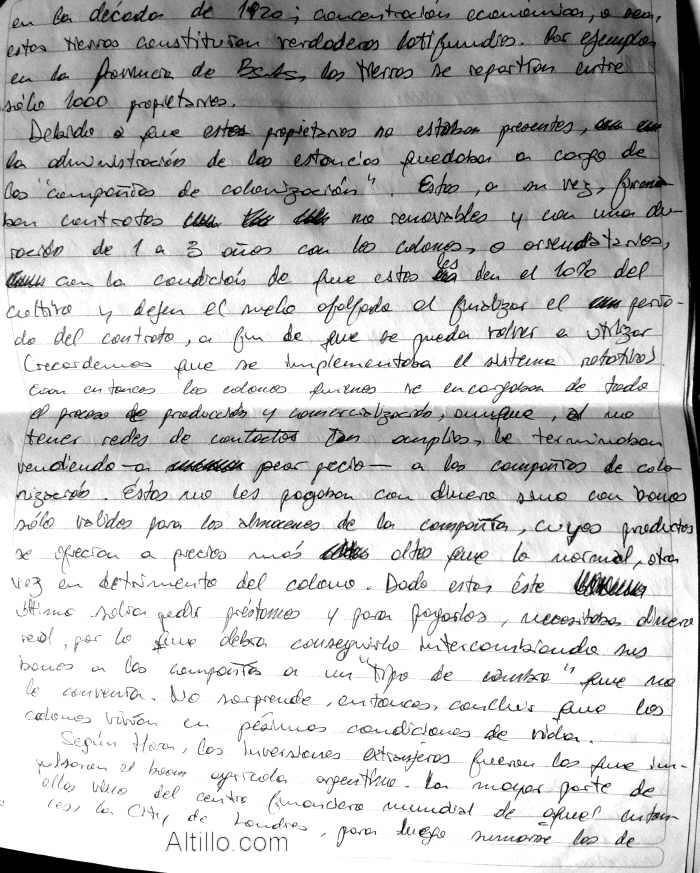 en la década de 1920; concentración económica, o sea,
estas tierras constituían verdaderos latifundios. Por ejemplo,
en la Provincia de BsAs, las tierras se repartían entre
sólo 1000 propietarios.
Debido a que estos propietarios no estaban presentes,
la administración de las estancias quedaba a cargo de
las "compañías de colonización". Estas, a su vez, firma-
ban contratos no renovables y con una du-
ración de 1 a 3 años con los colonos, o arrendatarios,
con la condición de que estos les den el 10% del
cultivo y dejen el suelo alfalfado al finalizar el perío-
do del contrato, a fin de que se pueda volver a utilizar
(recordemos que se implementaba el sistema rotativo).
Eran entonces los colonos quienes se encargaban de todo
el proceso de producción y comercialización, aunque, al no
tener redes de contactos tan amplias, le terminaban
vendiendo —a peor precio— a las compañías de colo-
nización. Éstas no les pagaban con dinero sino con bonos
sólo válidos para los almacenes de la compañía, cuyos productos
se ofrecían a precios más altos que lo normal, otra
vez en detrimento del colono. Dado esto, éste
último solía pedir préstamos y para pagarlos, necesitaba dinero
real, por lo que debía conseguirlo intercambiando sus
bonos a las compañías a un "tipo de cambio" que no
le convenía. No sorprende, entonces, concluir que los
colonos vivían en pésimas condiciones de vida.
Según Hora, las inversiones extranjeras fueron las que im-
pulsaron el boom agrícola argentino. La mayor parte de
ellas vino del centro financiero mundial de aquel enton-
ces, la City de Londres, para luego sumarse las de
Altillo.com